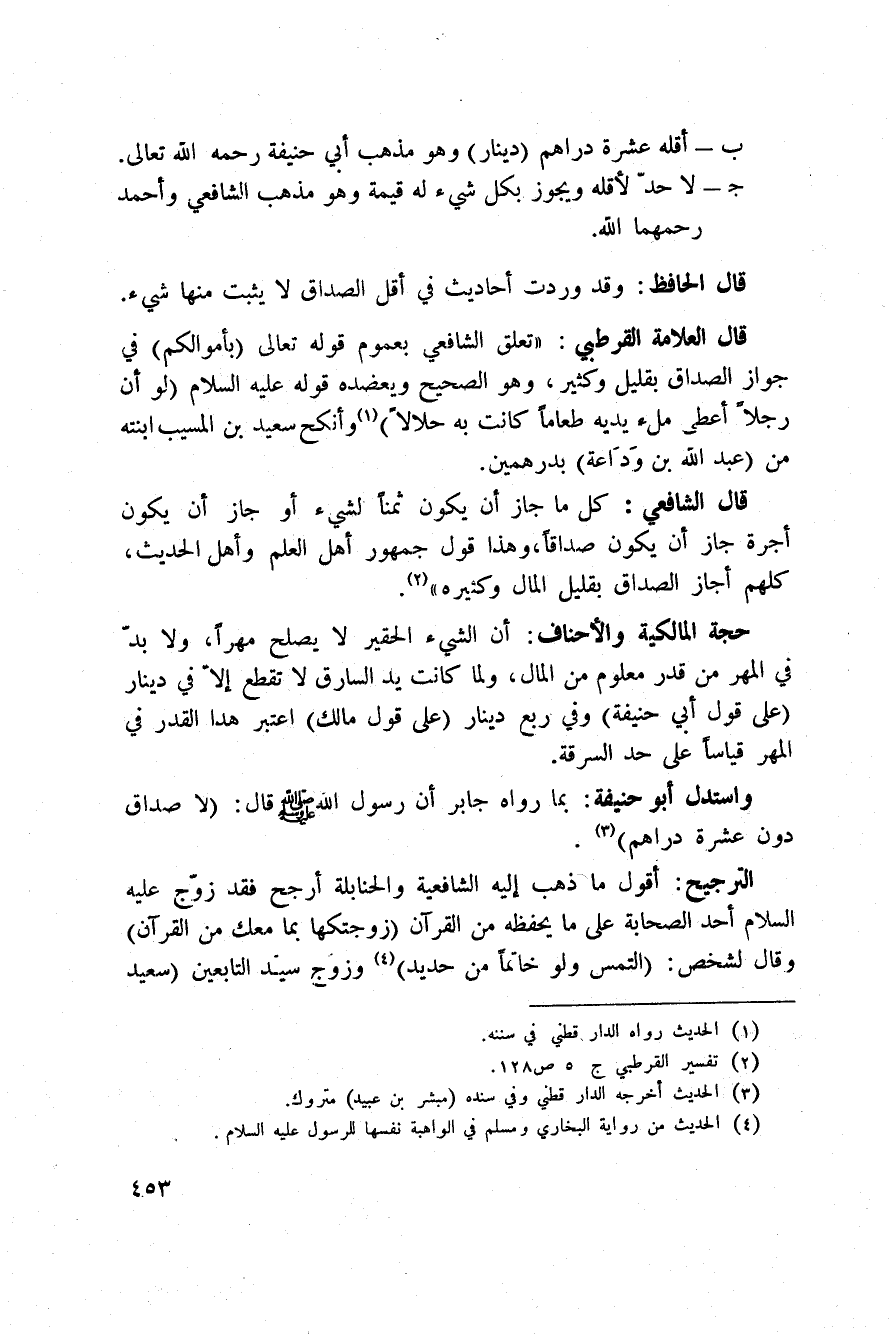 ب ــ أقله عشرة دراهم (دينار) وهو مذهب أبي حنيفة رحمه الله تعالى.
جـ ــ لا حدّ لأقله ويجوز بكل شيء له قيمة وهو مذهب الشافعي وأحمد
رحمهما الله.
قال الحافظ: وقد وردت أحاديث في أقل الصداق لا يثبت منها شيء.
قال العلامة القرطبي : «تعلق الشافعي بعموم قوله تعالى (بأموالكم) في
جواز الصداق بقليل وكثير، وهو الصحيح ويعضده قوله عليه السلام (لو أن
رجلاً أعطى ملء يديه طعاماً كانت به حلالاً)(١) وأنكح سعيد بن المسيب ابنته
من (عبد الله بن وَدَاعة) بدرهمين.
قال الشافعي : كل ما جاز أن يكون ثمناً لشيء أو جاز أن يكون
أجرة جاز أن يكون صداقاً، وهذا قول جمهور أهل العلم وأهل الحديث،
كلهم أجاز الصداق بقليل المال وكثيره»(٢).
حجة المالكية والأحناف: أن الشيء الحقير لا يصلح مهراً، ولا بدّ
في المهر من قدر معلوم من المال، ولما كانت يد السارق لا تقطع إلاّ في دينار
(على قول أبي حنيفة) وفي ربع دينار (على قول مالك) اعتبر هذا القدر في
المهر قياساً على حد السرقة.
واستدل أبو حنيفة: بما رواه جابر أن رسول الله ﷺ قال: (لا صداق
دون عشرة دراهم)(٣) .
الترجيح: أقول ما ذهب إليه الشافعية والحنابلة أرجح فقد زوّج عليه
السلام أحد الصحابة على ما يحفظه من القرآن (زوجتكها بما معك من القرآن)
وقال لشخص: (التمس ولو خاتماً من حديد)(٤) وزوّج سيّد التابعين (سعيد
(١) الحديث رواه الدار قطني في سننه.
(٢) تفسير القرطبي ج ٥ ص١٢٨.
(٣) الحديث أخرجه الدار قطني وفي سنده (مبشر بن عبيد) متروك.
(٤) الحديث من رواية البخاري ومسلم في الواهبة نفسها للرسول عليه السلام .
٤٥٣